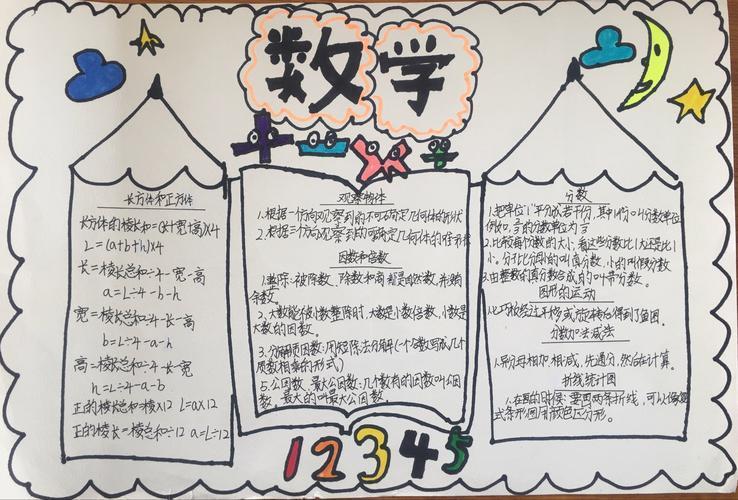 数学
长方体和正方体
长方体的棱长和=(长+宽+高)×4
L=(a+b+h)×4
长=棱长总和÷4-宽-高
a=L÷4-b-h
宽=棱长总和÷4-长-高
b=L÷4-a-h
高=棱长总和÷4-长-宽
h=L÷4-a-b
正的棱长总和=棱×12 L=a×12
正的棱长=棱总和÷12 a=L÷12
观察物体
1.根据一个方向观察到的不可确定几何体的形状
2.根据三个方向观察到的可确定几何体的
因数和倍数
1.整除:被除数、除数和商都是自然数,并
余数。
2.大数能被小数整除时,大数是小数倍数,小数是
大数的因数。
3.分解质因数:用短除法分解(一个合数写成几个
质数相乘的形式)
5.公因数、最大公因数:几个数有的因数叫公因
数,最大的叫最大公因数。
分数
1.把单位"1"平分成若干份,其中1份叫分数单位
例如, 的分数单位为
2.比较每个数的大小,看这些分数比1大还是比1
小。分 比分母 的叫真分数,小的叫假分数
3.由整数的真分数合成的叫带分数。
图形的运动
1.七巧板经过平移或旋转 得到了鱼图。
分数加法减法
1.异分母相加相减,先通分,然后在计算。
折线统计图
1.在画的时候,要画两条折线,可以
式条形图用颜色区分形。
12345